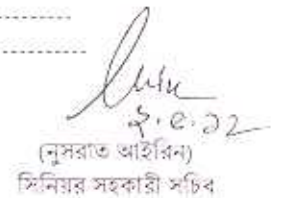 ২.৫.১২
(নুসরাত আইরিন)
সিনিয়র সহকারী সচিব